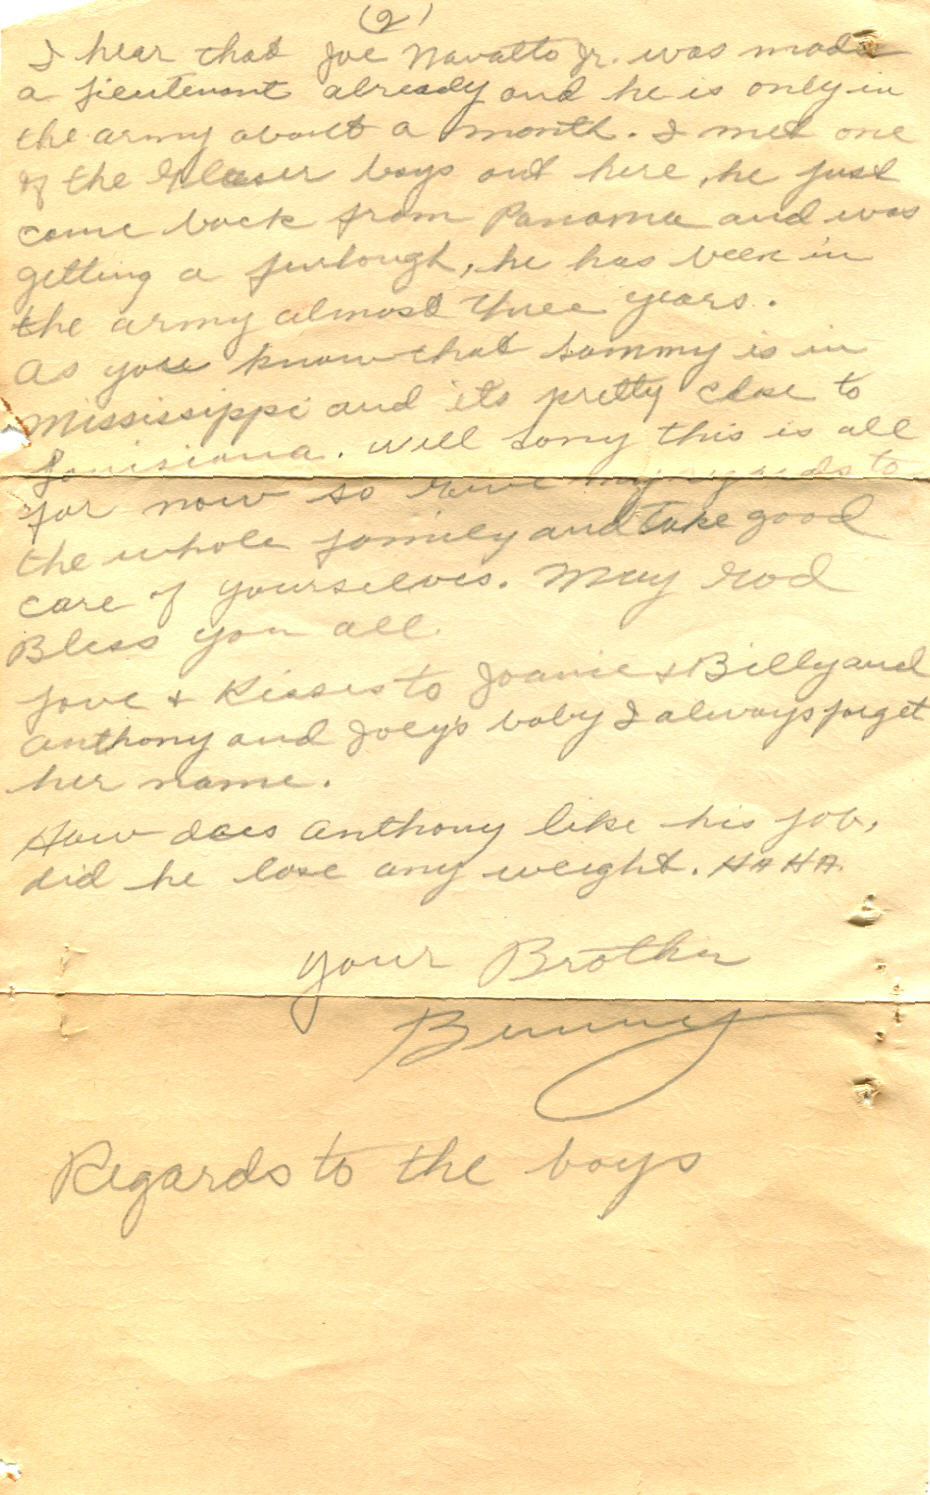 (2)
I hear that Joe Navatto Jr. was made
a lieutenant already and he is only in
the army about a month. I met one
of the Glaser boys out here, he just
come back from Panama and was
getting a furlough, he has been in
the army almost three years.
As you know that Sammy is in
Mississippi and its pretty close to
Louisiana. Well Sorry this is all
for now so Give my regards to
the whole family and take good
care of yourselves. May God
Bless you all.
Love + Kisses to Joanie + Billy and
Anthony and Joey's baby I always forget
her name.
How does Anthony like his job,
did he lose any weight. HA HA.
Your Brother
Bunny
Regards to the boys